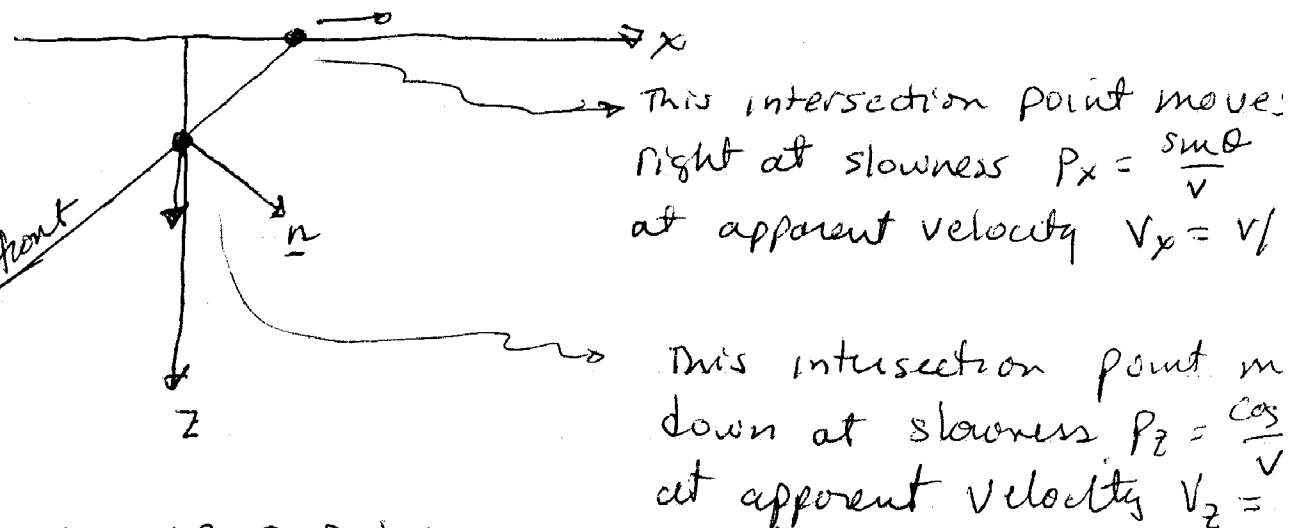 x
This intersection point move
right at slowness Px = sinθ/v
at apparent velocity Vx = v/
n
front
This intersection point m
down at slowness Pz = cos/v
at apparent velocity Vz =
Z